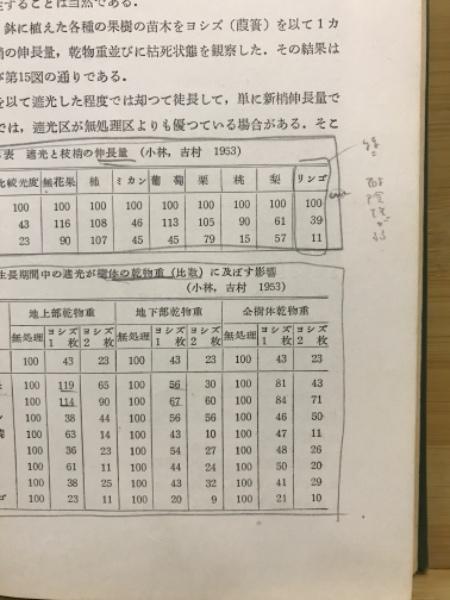 することは当然である.
鉢に植えた各種の果樹の苗木をヨシズ(葭簀)を以て1カ
梢の伸長量，乾物重並びに枯死状態を観察した．その結果は
第15図の通りである.
を以て遮光した程度では却つて徒長して，単に新梢伸長量で
では，遮光区が無処理区よりも優つている場合がある．そこ
表 遮光と枝梢の伸長量 (小林，吉村 1953)
比較光度 無花果 柿 ミカン 葡萄 栗 桃 梨 リンゴ
100 100 100 100 100 100 100 100 100
43 116 108 46 113 105 90 61 39
23 90 107 45 45 79 15 57 11
生長期間中の遮光が樹体の乾物重(比数)に及ぼす影響
(小林，吉村 1953)
地上部乾物重 地下部乾物重 全樹体乾物重
無処理 ヨシズ1枚 ヨシズ2枚 無処理 ヨシズ1枚 ヨシズ2枚 無処理 ヨシズ1枚 ヨシズ2枚
100 43 23 100 43 23 100 43 23
100 119 65 100 56 30 100 81 43
100 114 90 100 67 60 100 84 71
ン 100 38 44 100 56 56 100 46 50
萄 100 63 14 100 43 10 100 47 11
100 36 23 100 54 27 100 48 26
100 61 11 100 44 24 100 50 20
100 38 25 100 43 32 100 41 29
ゴ 100 23 11 100 20 9 100 21 10